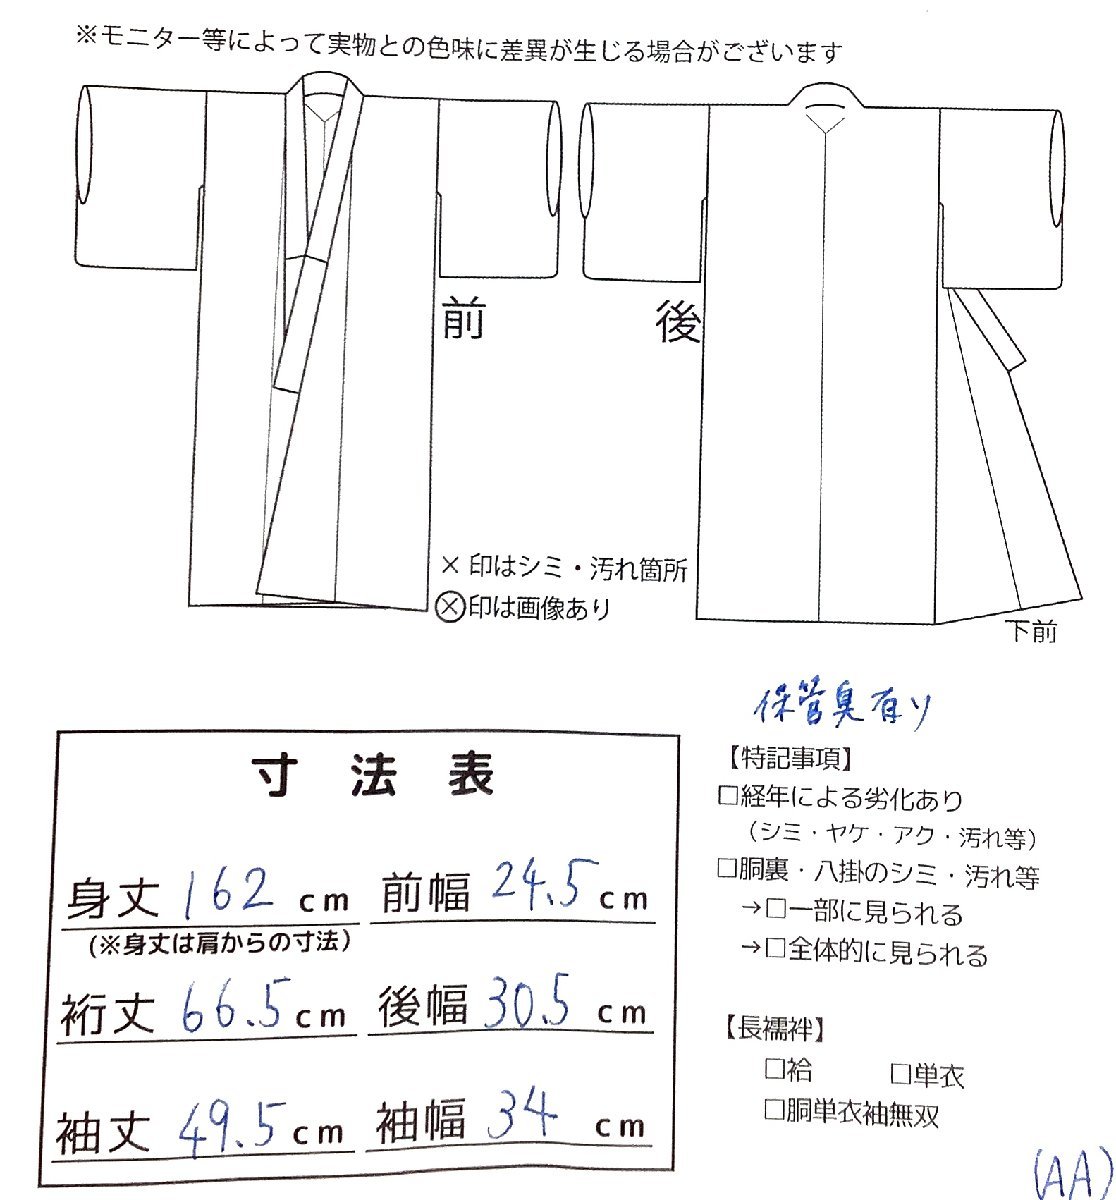 ※モニター等によって実物との色味に差異が生じる場合がございます
前
後
×印はシミ・汚れ箇所
⊗印は画像あり
下前
保管臭有り
寸法表
身丈 162 cm 前幅 24.5 cm
(※身丈は肩からの寸法)
裄丈 66.5 cm 後幅 30.5 cm
袖丈 49.5 cm 袖幅 34 cm
【特記事項】
□経年による劣化あり
(シミ・ヤケ・アク・汚れ等)
□胴裏・八掛のシミ・汚れ等
→□一部に見られる
→□全体的に見られる
【長襦袢】
□袷 □単衣
□胴単衣袖無双
(AA)